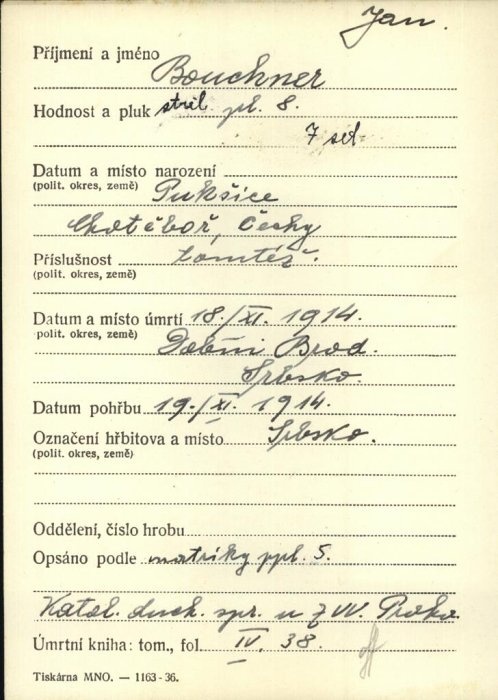 Jan.
Příjmení a jméno
Bouchner
Hodnost a pluk střel. pl. 8.
7 set
Datum a místo narození
(polit. okres, země) Pukšice
Chotěboř, Čechy
Příslušnost tamtéž.
(polit. okres, země)
Datum a místo úmrtí 18./XI. 1914.
polit. okres, země) Brod.
Srbsko.
Datum pohřbu 19./XI. 1914.
Označení hřbitova a místo Srbsko.
(polit. okres, země)
Oddělení, číslo hrobu
Opsáno podle matriky ppl. 5.
Katol. duch. spr. u ZVV. Praha
Úmrtní kniha: tom., fol. IV. 38.
Tiskárna MNO. — 1163-36.